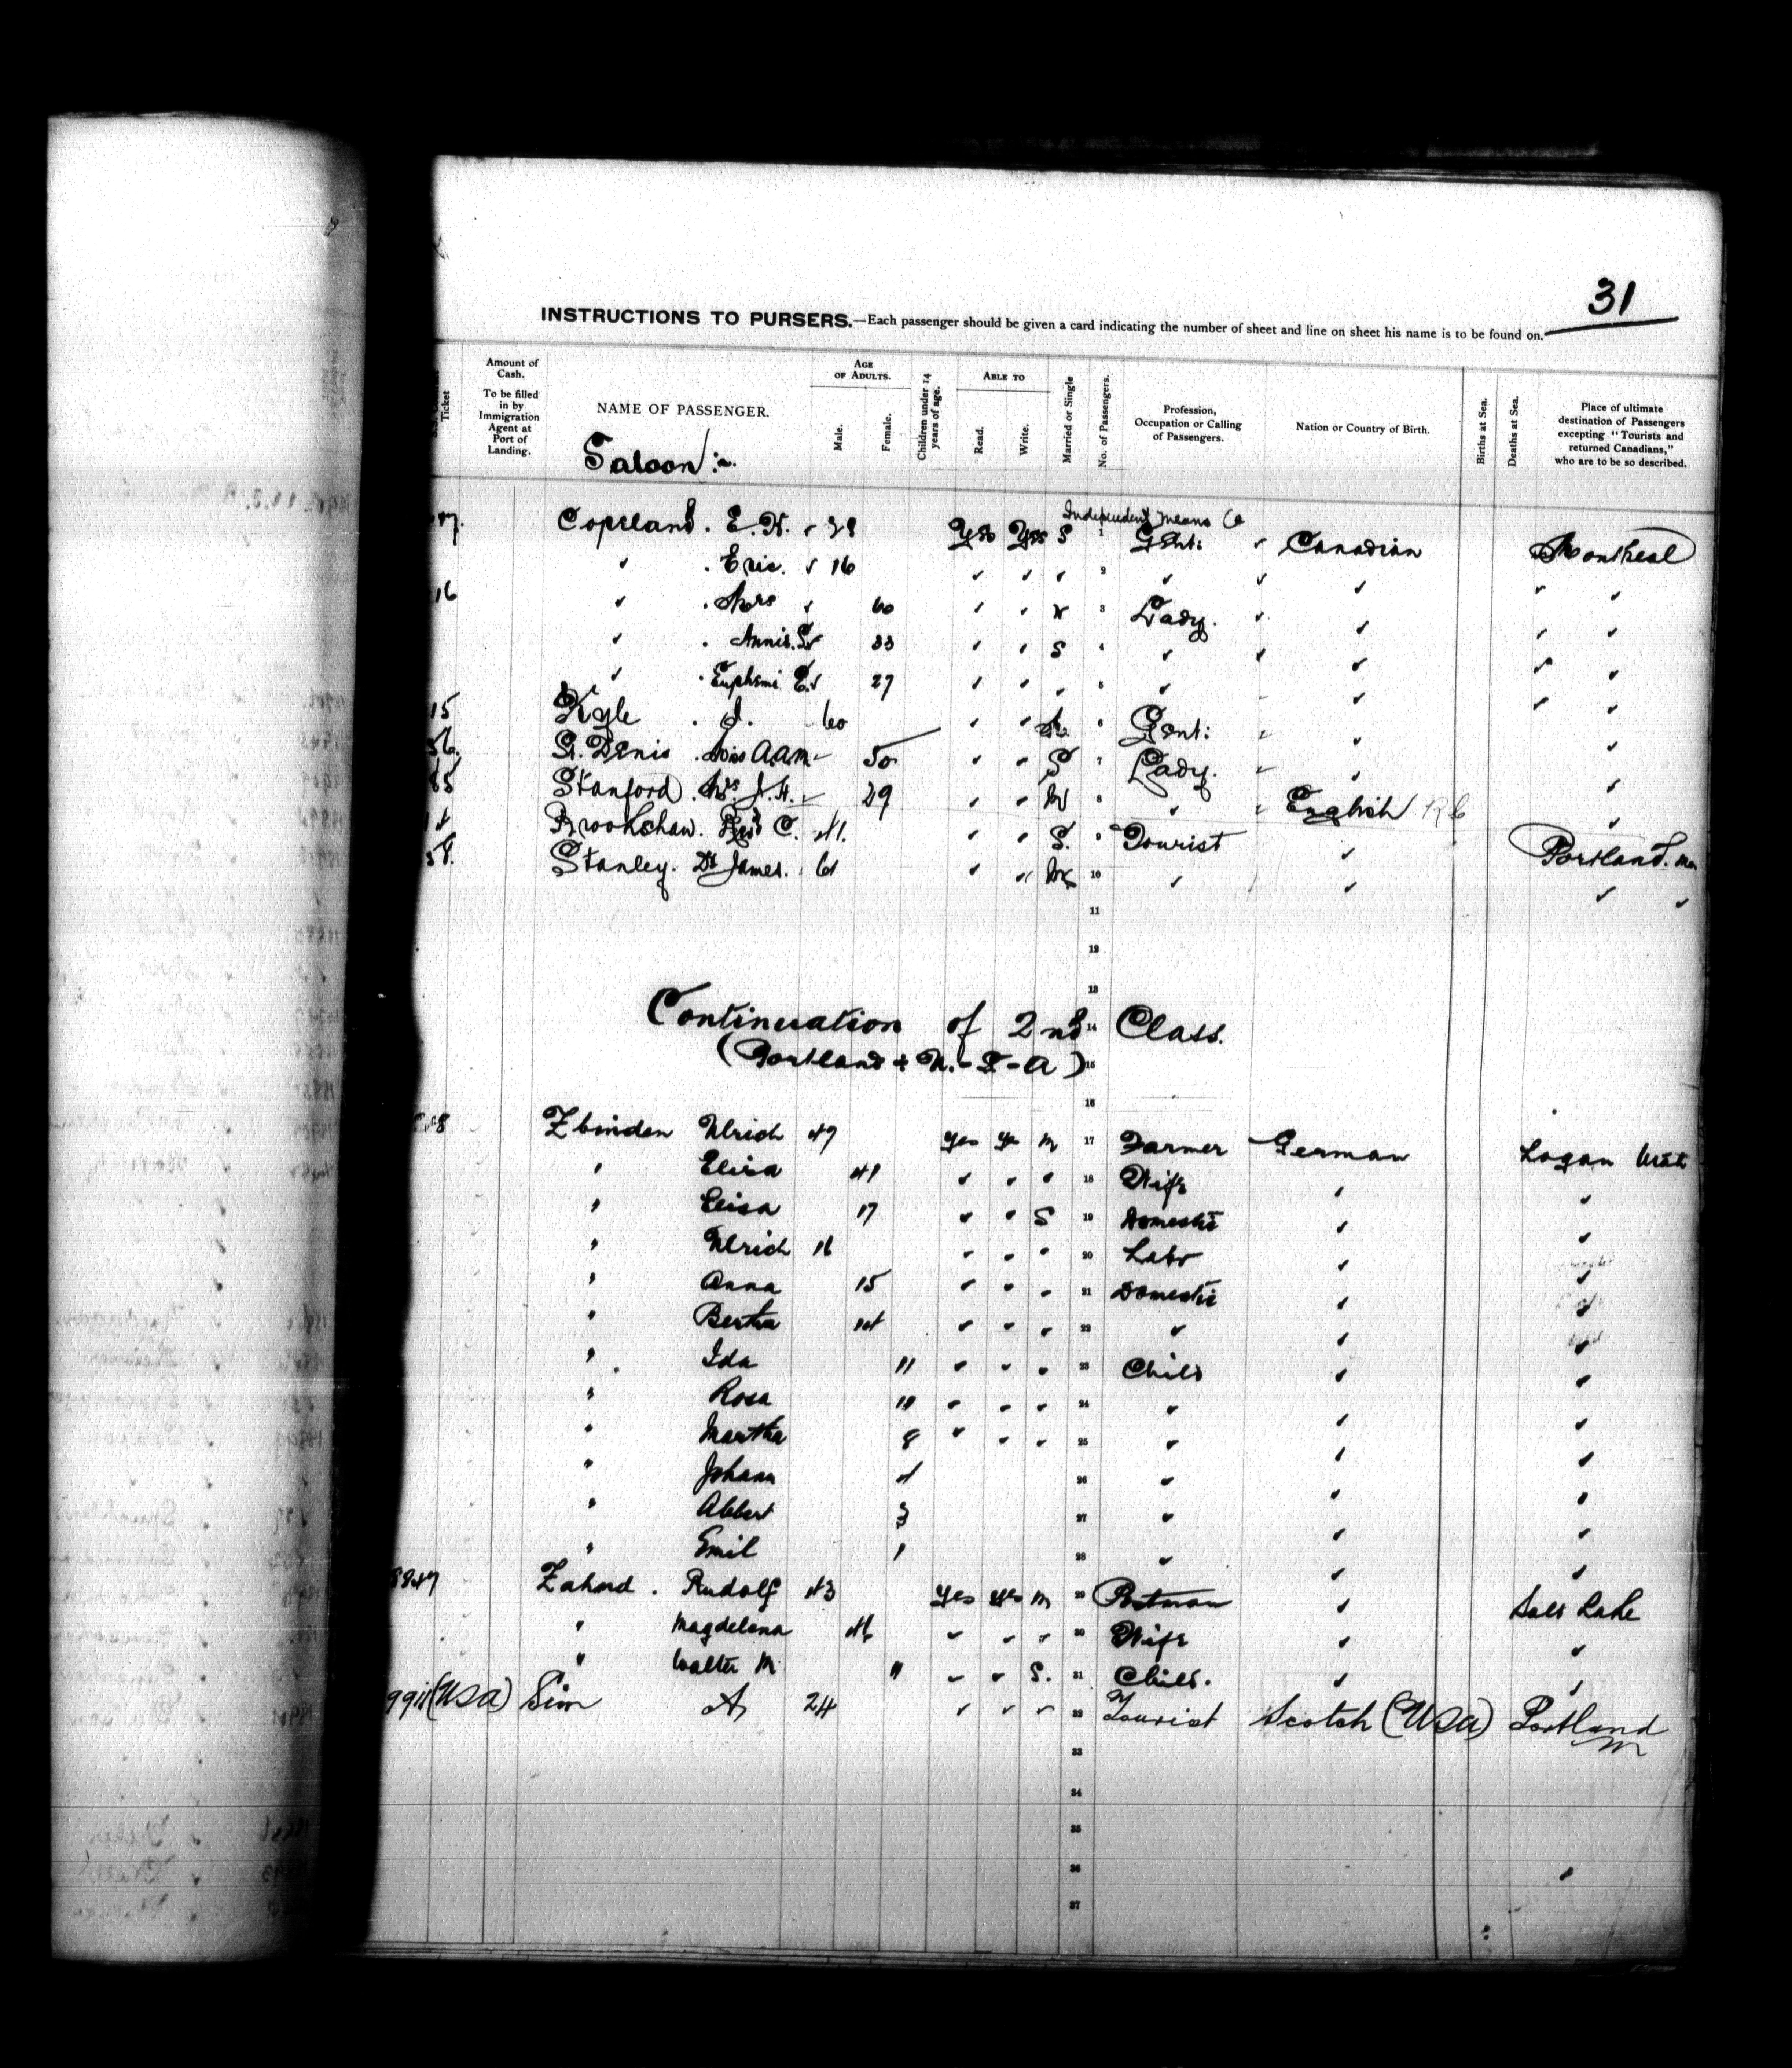 31
INSTRUCTIONS TO PURSERS.—Each passenger should be given a card indicating the number of sheet and line on sheet his name is to be found on.
Ticket
Amount of Cash.
To be filled in by Immigration Agent at Port of Landing.
NAME OF PASSENGER.
AGE OF ADULTS.
Male.
Female.
Children under 14 years of age.
ABLE TO
Read.
Write.
Married or Single
No. of Passengers.
Profession, Occupation or Calling of Passengers.
Nation or Country of Birth.
Births at Sea.
Deaths at Sea.
Place of ultimate destination of Passengers excepting "Tourists and returned Canadians," who are to be so described.
Saloon:-
Independent means
Copeland. E. Yes Yes S 1 Gent: Canadian Montreal
" . Eric. 16 " " " 2 " " "
16 " . Mrs 60 " " 3 Lady. " "
" . Annie. 33 " " S 4 " " "
" . Euphemi E. 27 " " " 5 " " "
15 Kyle . J. 60 " " 6 Gent: " "
56. St. Denis . Miss A.A.M. 50 " " S 7 Lady. " "
85 Stanford. Mrs. J.H. 29 " " M 8 " English "
Brookshaw. C. 41. " " S. 9 Tourist " Portland. Me
58. Stanley. Dr James. " " 10 " " "
11
12
13
Continuation of 2nd 14 Class.
(Portland & U.-S-A) 15
16
Zbinden Ulrich 47 Yes Yes M 17 Farmer German Logan Utah
" Elisa 41 " " " 18 Wife " "
" Elisa 17 " " S 19 Domestic " "
" Ulrich 16 " " " 20 Labr " "
" Anna 15 " " " 21 Domestic " "
" Bertha 14 " " " 22 " " "
" Ida 11 " " " 23 Child " "
" Rosa " " " 24 " " "
" Martha 8 " " " 25 " " "
" Johann 4 26 " " "
" Albert 3 27 " " "
" Emil 1 28 " " "
8847 Zahnd . Rudolf 43 Yes Yes M 29 Postman " Salt Lake
" Magdelena " " " 30 Wife " "
" Walter M. 11 " " S. 31 Child. " "
(USA) Sim A 24 " " " 32 Tourist Scotch (USA) Portland M
33
34
35
36
37